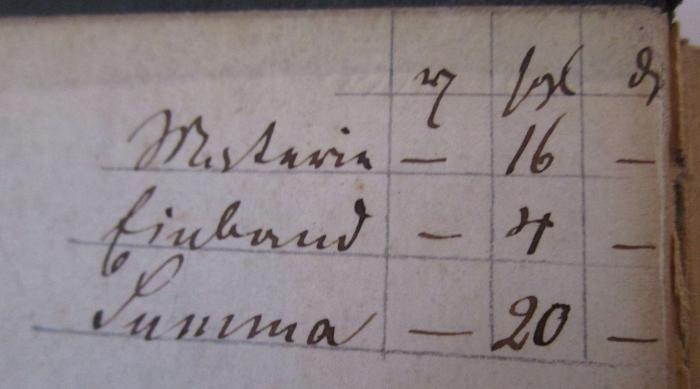 sgl
Materie — 16 —
Einband — 4 —
Summa — 20 —